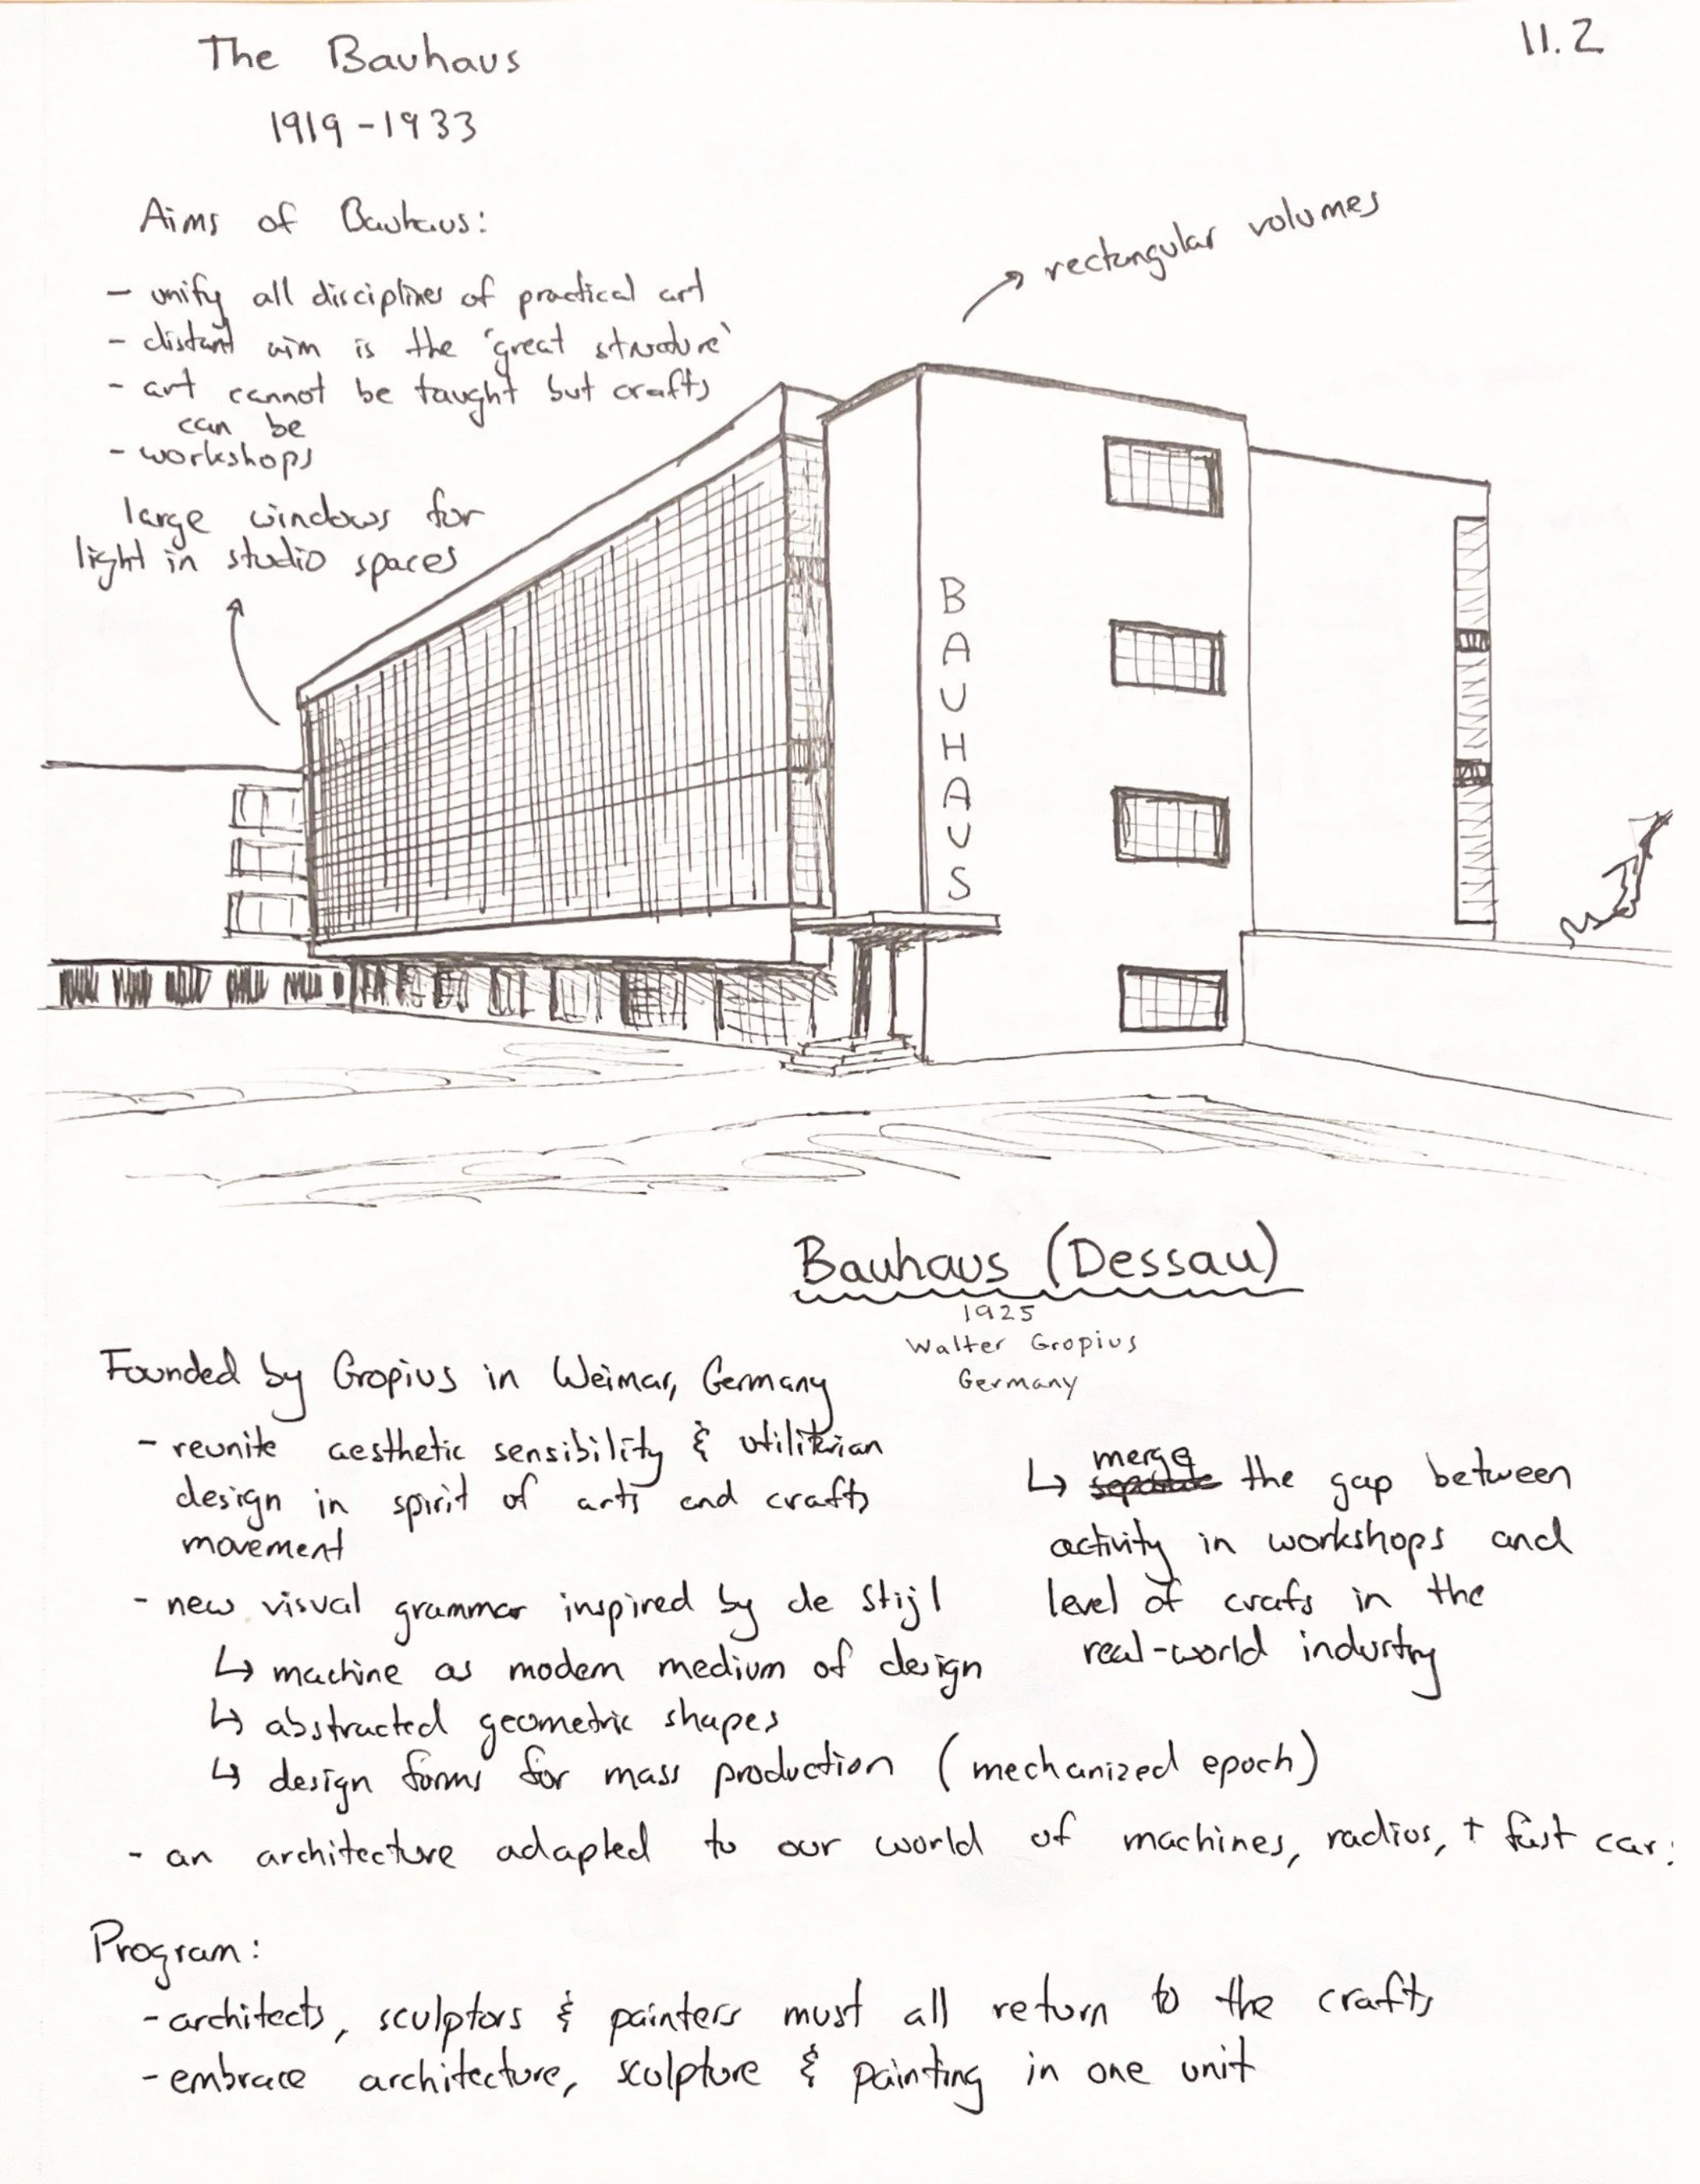 The Bauhaus
11.2
1919-1933
Aims of Bauhaus:
- unify all disciplines of practical art
- distant aim is the 'great structure'
- art cannot be taught but crafts
can be
- workshops
large windows for
light in studio spaces
→ rectangular volumes
B
A
U
H
A
U
S
Bauhaus (Dessau)
1925
Walter Gropius
Germany
Founded by Gropius in Weimar, Germany
- reunite aesthetic sensibility & utilitarian
design in spirit of arts and crafts
movement
- new visual grammar inspired by de Stijl
↳ machine as modern medium of design
↳ abstracted geometric shapes
↳ design forms for mass production (mechanized epoch)
- an architecture adapted to our world of machines, radios, + fast cars
↳ merge the gap between
activity in workshops and
level of crafs in the
real-world industry
Program:
- architects, sculptors & painters must all return to the crafts
- embrace architecture, sculpture & painting in one unit